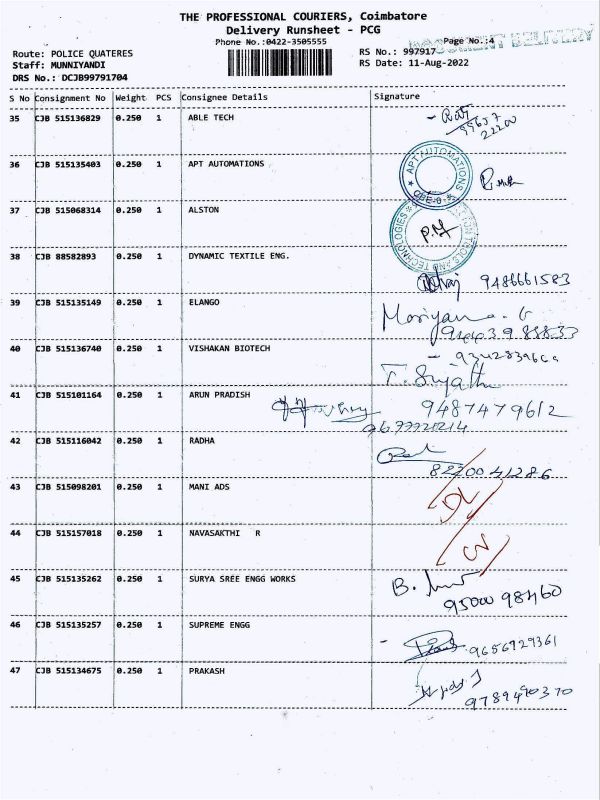 THE PROFESSIONAL COURIERS, Coimbatore
Delivery Runsheet - PCG
Phone No.:0422-3505555
Page No.:4
DOCUMENT DELIVERY
Route: POLICE QUATERES
RS No.: 997917
Staff: MUNNIYANDI
RS Date: 11-Aug-2022
DRS No.: DCJB99791704
S No Consignment No Weight PCS Consignee Details Signature
35 CJB 515136829 0.250 1 ABLE TECH
36 CJB 515135403 0.250 1 APT AUTOMATIONS
APT AUTOMATIONS
37 CJB 515068314 0.250 1 ALSTON
TOOLS AND TECHNOLOGIES
38 CJB 88582893 0.250 1 DYNAMIC TEXTILE ENG.
9486661583
39 CJB 515135149 0.250 1 ELANGO
40 CJB 515136740 0.250 1 VISHAKAN BIOTECH
T. Sujatha
41 CJB 515101164 0.250 1 ARUN PRADISH
9487479612
42 CJB 515116042 0.250 1 RADHA
8220041286
43 CJB 515098201 0.250 1 MANI ADS
DL
44 CJB 515157018 0.250 1 NAVASAKTHI R
45 CJB 515135262 0.250 1 SURYA SREE ENGG WORKS
B.
95000 98460
46 CJB 515135257 0.250 1 SUPREME ENGG
9656929361
47 CJB 515134675 0.250 1 PRAKASH
9789490370